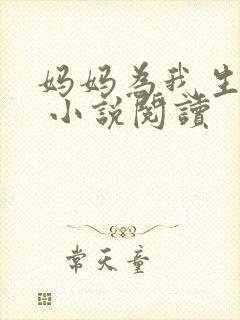 妈妈為我生
小說閱讀
常天童